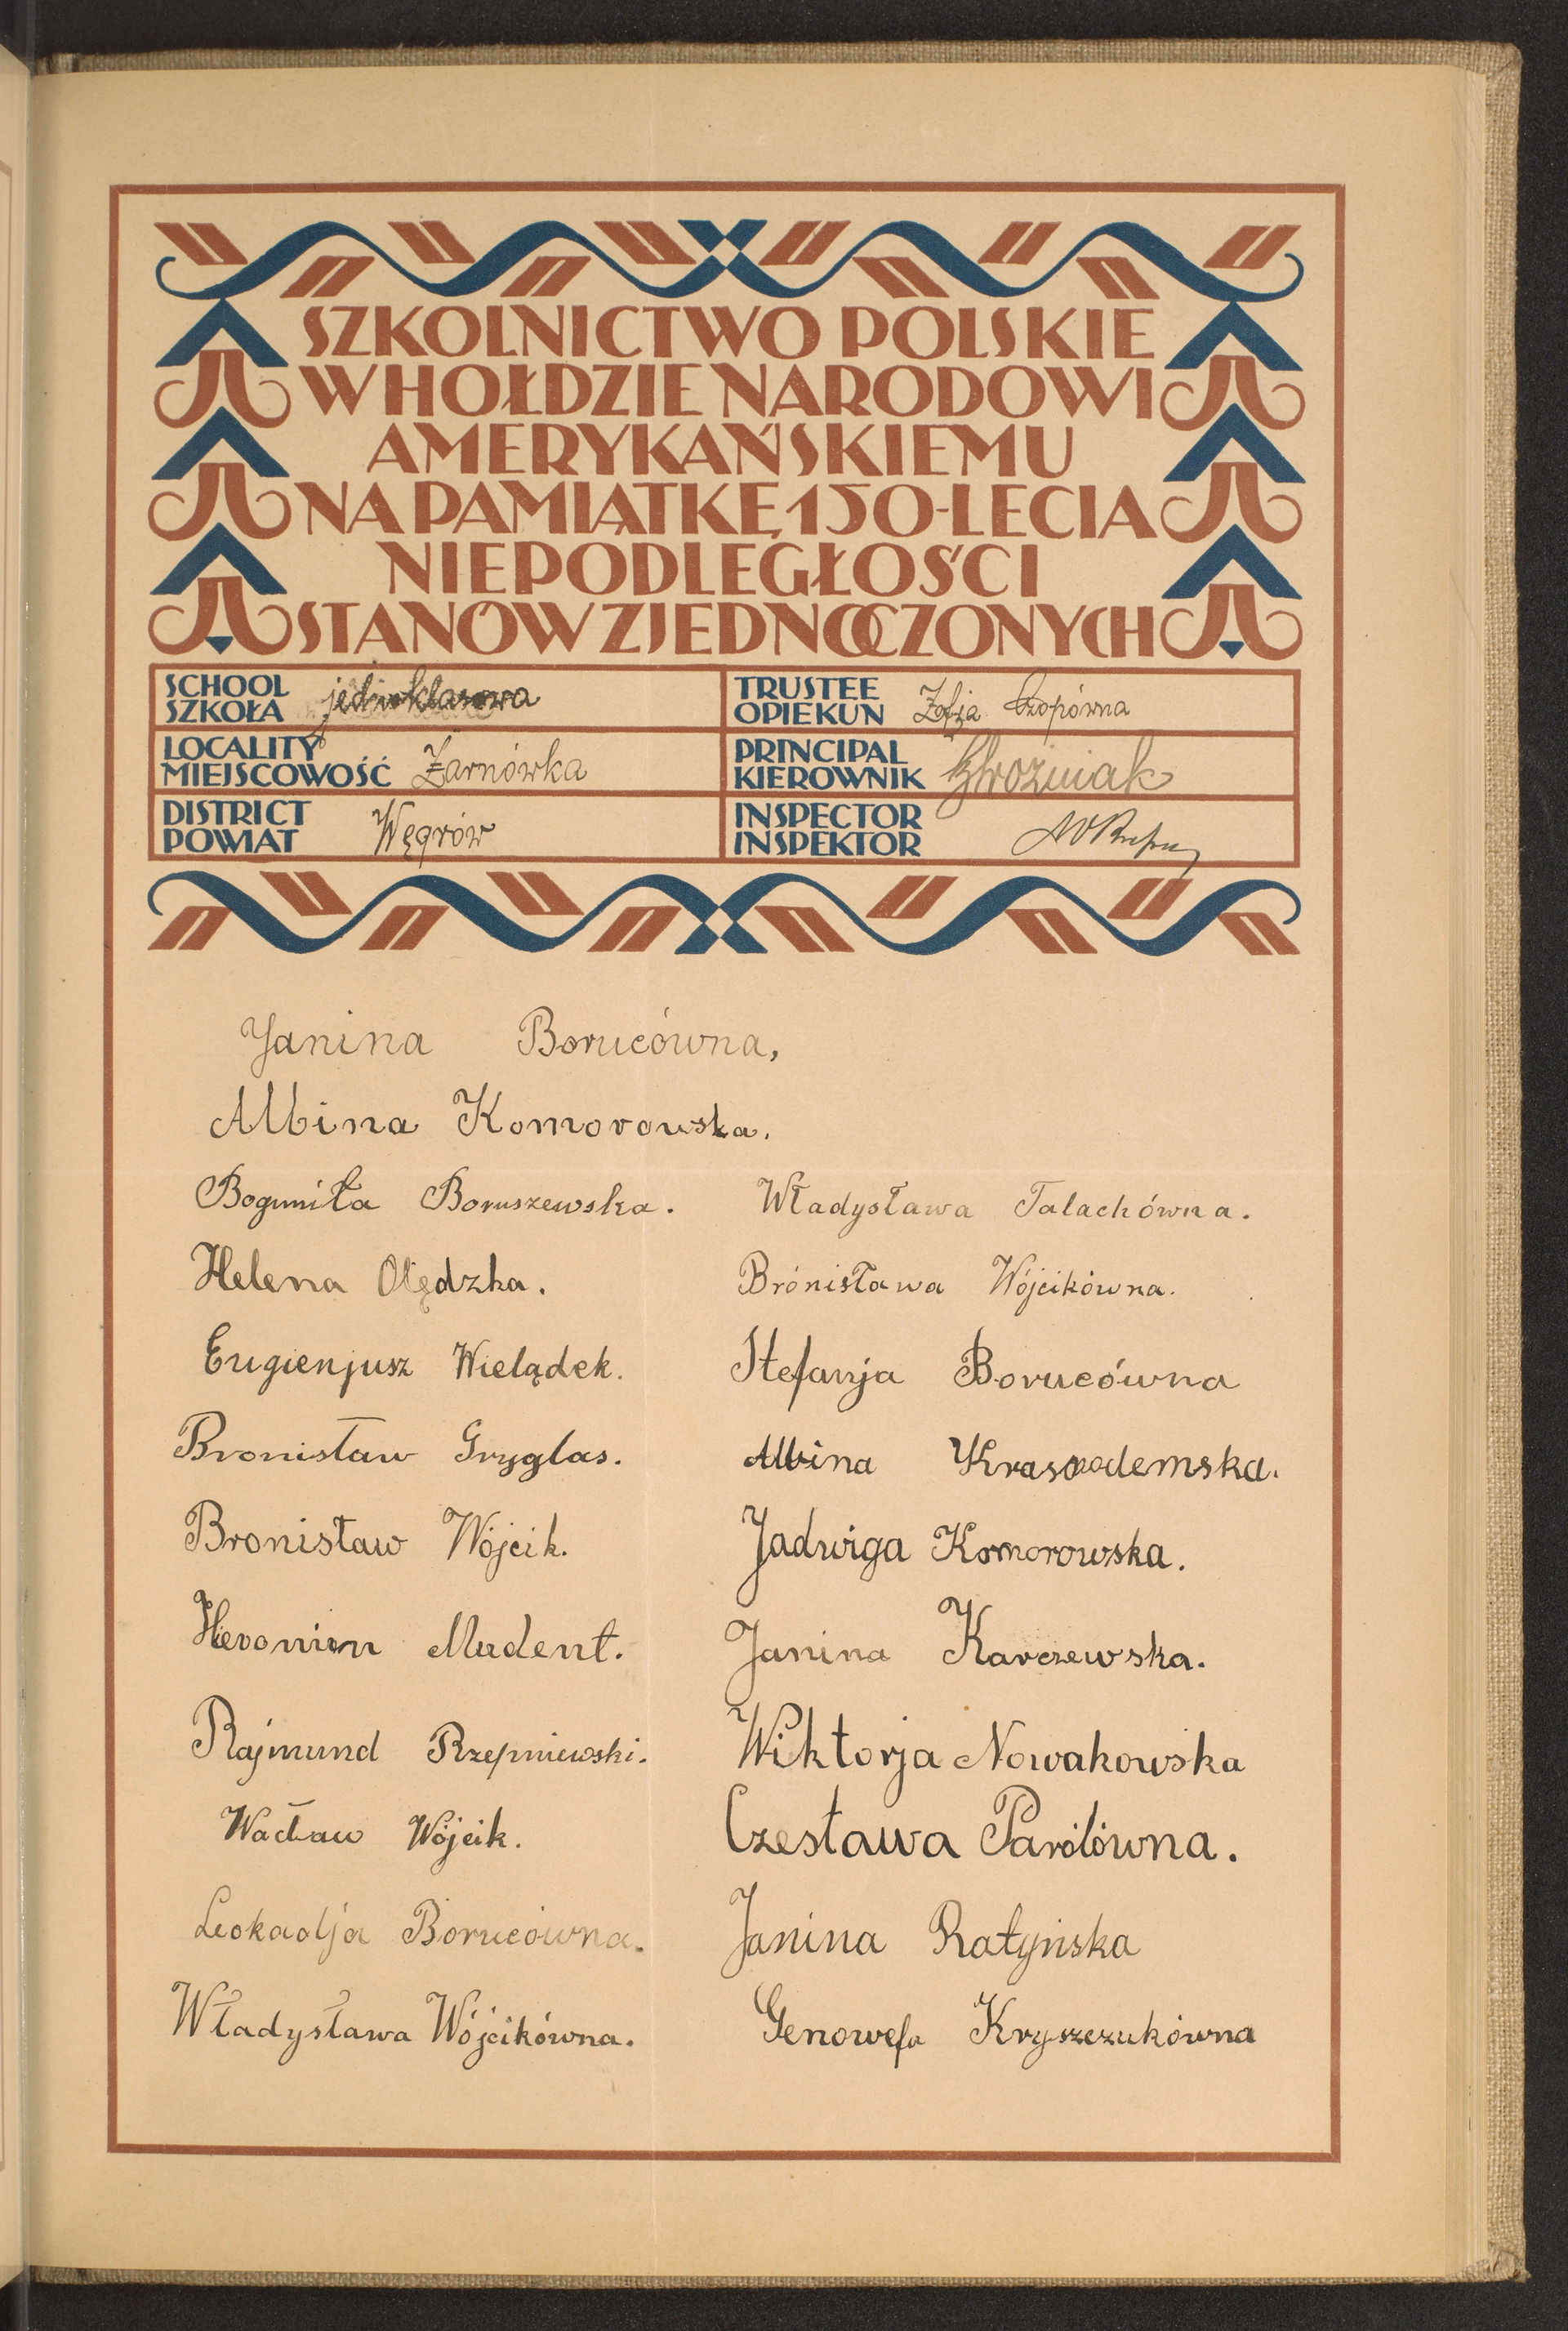 SZKOLNICTWO POLSKIE
W HOŁDZIE NARODOWI
AMERYKAŃSKIEMU
NA PAMIĄTKĘ 150-LECIA
NIEPODLEGŁOŚCI
STANÓW ZJEDNOCZONYCH
SCHOOL
SZKOŁA jednoklasowa
TRUSTEE
OPIEKUN Zofja Czopówna
LOCALITY
MIEJSCOWOŚĆ Żarnówka
PRINCIPAL
KIEROWNIK
DISTRICT
POWIAT Węgrów
INSPECTOR
INSPEKTOR
Janina Borucówna,
Albina Komorowska.
Bogumiła Boruszewska.
Helena Olędzka.
Eugienjusz Wielądek.
Bronisław Gryglas.
Bronisław Wójcik.
Heronim Mudent.
Rajmund Rzepniewski.
Wacław Wójcik.
Leokadja Borucówna.
Władysława Wójcikówna.
Władysława Talachówna.
Brónisława Wójcikówna.
Stefanja Borucówna
Albina Krasnodemska.
Jadwiga Komorowska.
Janina Karczewska.
Wiktorja Nowakowska
Czesława Parólówna.
Janina Ratyńska
Genowefa Kryszczukówna